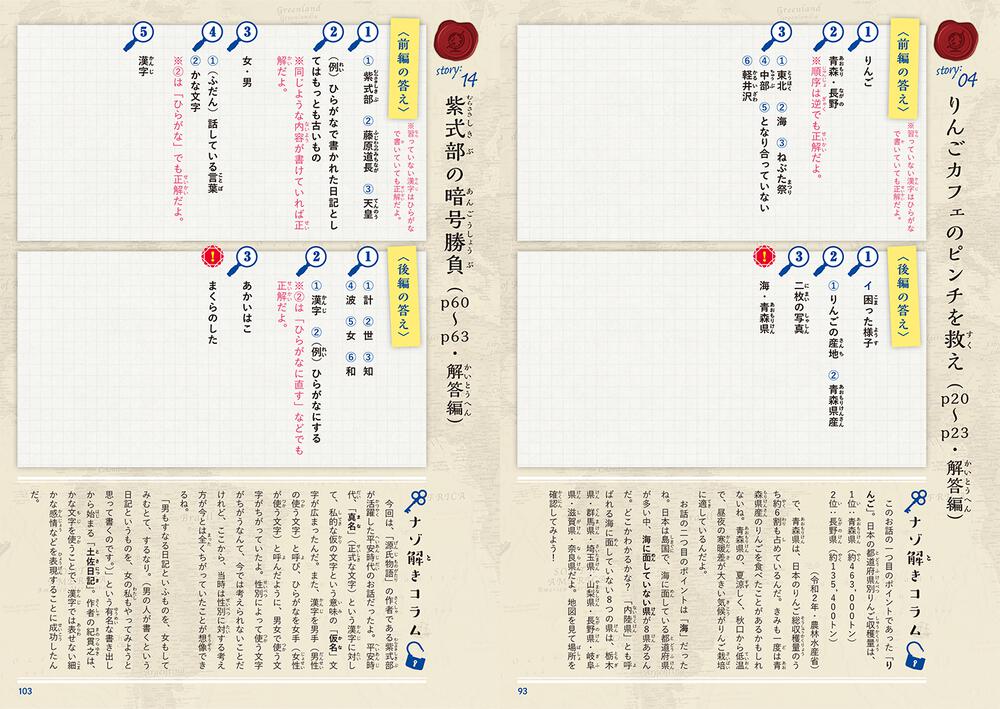 story: 04
りんごカフェのピンチを救え（p20〜p23・解答編）
〈前編の答え〉
※習っていない漢字はひらがな
で書いていても正解だよ。
1
りんご
2
青森・長野
※順序は逆でも正解だよ。
3
①東北 ②海 ③ねぶた祭
④中部 ⑤となり合っていない
⑥軽井沢
〈後編の答え〉
1
イ 困った様子
2
①りんごの産地 ②青森県産
3
二枚の写真
!
海・青森県
ナゾ解きコラム
このお話の一つ目のポイントであった「り
んご」。日本の都道府県別りんご収穫量は、
1位：青森県（約463,000トン）
2位：長野県（約135,400トン）
（令和2年・農林水産省）
で、青森県は、日本のりんご総収穫量のう
ち約6割も占めているんだ。きみも一度は青
森県産のりんごを食べたことがあるかもしれ
ないね。青森県の、夏涼しく、秋口から低温
で、昼夜の寒暖差が大きい気候がりんご栽培
に適しているんだよ。
お話の二つ目のポイントは「海」だった
ね。日本は島国で、海に面している都道府県
が多い中、海に面していない県が8県あるん
だ。どこかわかるかな？「内陸県」とも呼
ばれる海に面していない8つの県は、栃木
県・群馬県・埼玉県・山梨県・長野県・岐阜
県・滋賀県・奈良県だよ。地図を見て場所を
確認してみよう！
93
story: 14
紫式部の暗号勝負（p60〜p63・解答編）
〈前編の答え〉
※習っていない漢字はひらがな
で書いていても正解だよ。
1
①紫式部 ②藤原道長 ③天皇
2
（例）ひらがなで書かれた日記とし
てはもっとも古いもの
※同じような内容が書けていれば正
解だよ。
3
女・男
4
①（ふだん）話している言葉
②かな文字
※②は「ひらがな」でも正解だよ。
5
漢字
〈後編の答え〉
1
①計 ②世 ③知
④波 ⑤女 ⑥和
2
①漢字 ②（例）ひらがなにする
※②は「ひらがなに直す」などでも
正解だよ。
3
あかいはこ
!
まくらのした
ナゾ解きコラム
今回は、『源氏物語』の作者である紫式部
が活躍した平安時代のお話だったよ。平安時
代、「真名」（正式な文字）という漢字に対し
て、私的な仮の文字という意味の「仮名」文
字が広まったんだ。また、漢字を男手（男性
の使う文字）と呼び、ひらがなを女手（女性
が使う文字）と呼んだように、男女で使う文
字がちがっていたよ。性別によって使う文字
がちがうなんて、今では考えられないことだ
けれど、ここから、当時は性別に対する考え
方が今とは全くちがっていたことが想像でき
るね。
「男もすなる日記といふものを、女もして
みむとて、するなり。（男の人が書くという
日記というものを、女の私もやってみようと
思って書くのです。）」という有名な書き出し
から始まる『土佐日記』。作者の紀貫之は、
かな文字を使うことで、漢字では表せない細
かな感情などを表現することに成功したん
だ。
103